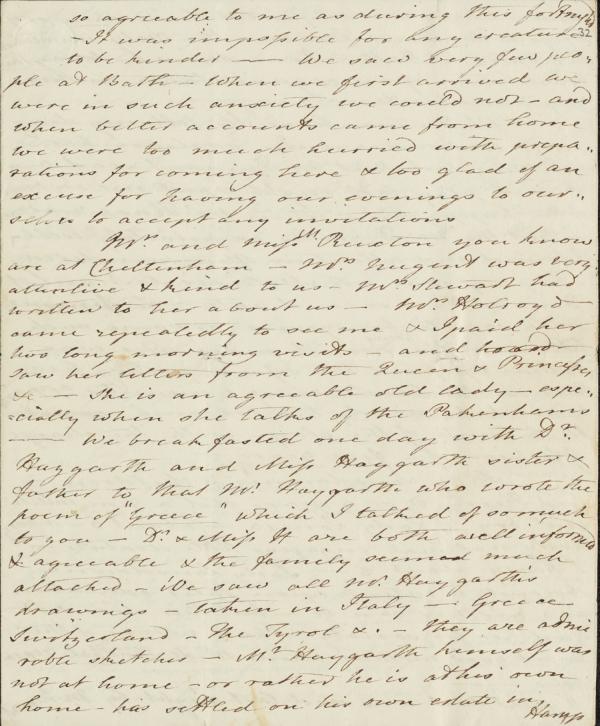 so agreeable to me as during this fortnight
32
- It was impossible for any creature
to be kinder — We saw very few peo-
ple at Bath - When we first arrived we
were in such anxiety we could not - and
when better accounts came from home
we were too much hurried with prepa-
rations for coming here & too glad of an
excuse for having our evenings to our-
selves to accept any invitations
Mrs and Miss M Ruxton you know
are at Cheltenham - Mrs Nugent was very
attentive & kind to us - Mrs Stewart had
written to her about us - Mrs Holroyd
came repeatedly to see me & I paid her
two long morning visits - and heard
saw her letters from the Queen & Princesses
&c - She is an agreeable old lady - espe-
cially when she talks of the Pakenhams
— We breakfasted one day with Dr.
Haygarth and Miss Haygarth sister &
father to that Mr Haygarth who wrote the
poem of "Greece" which I talked of so much
to you - Dr & Miss H are both well informed
& agreeable & the family seemed much
attached - We saw all Mr Haygarth's
drawings - taken in Italy - Greece
Switzerland - The Tyrol &c - they are admi
rable sketches - Mr Haygarth himself was
not at home - or rather he is at his own
home - has settled on his own estate in
Hamp